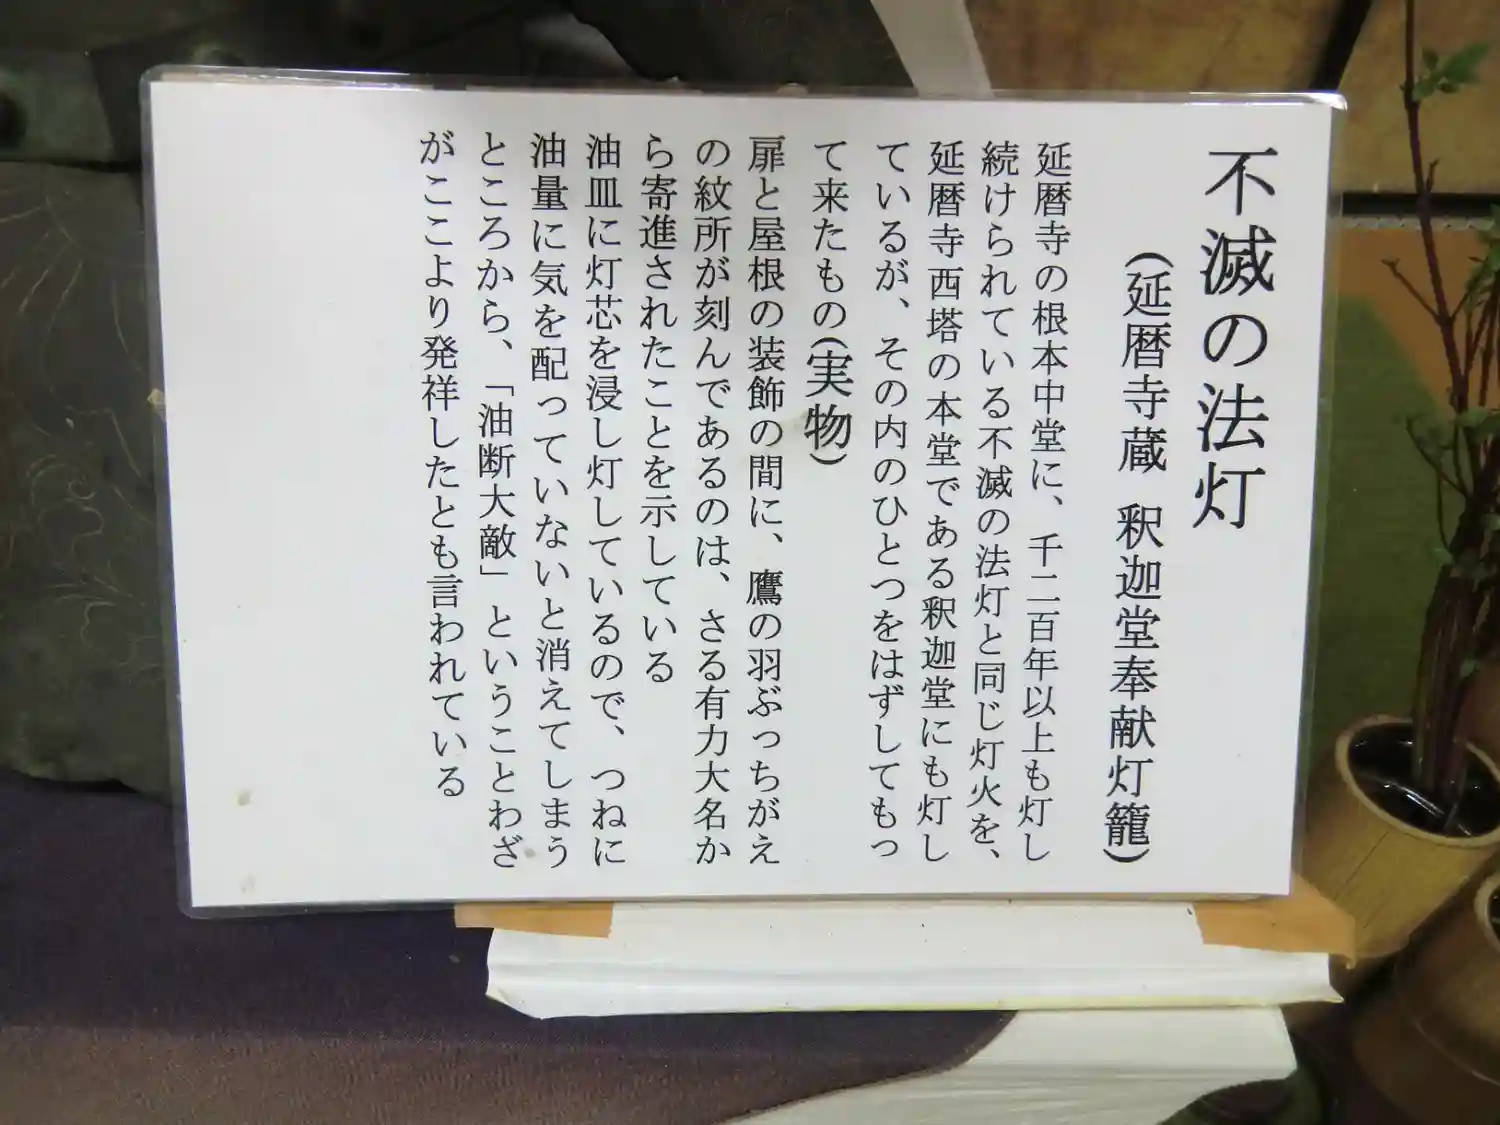 不滅の法灯
(延暦寺蔵 釈迦堂奉献灯籠)
延暦寺の根本中堂に、千二百年以上も灯し
続けられている不滅の法灯と同じ灯火を、
延暦寺西塔の本堂である釈迦堂にも灯し
ているが、その内のひとつをはずしてもっ
て来たもの(実物)
扉と屋根の装飾の間に、鷹の羽ぶっちがえ
の紋所が刻んであるのは、さる有力大名か
ら寄進されたことを示している
油皿に灯芯を浸し灯しているので、つねに
油量に気を配っていないと消えてしまう
ところから、「油断大敵」ということわざ
がここより発祥したとも言われている